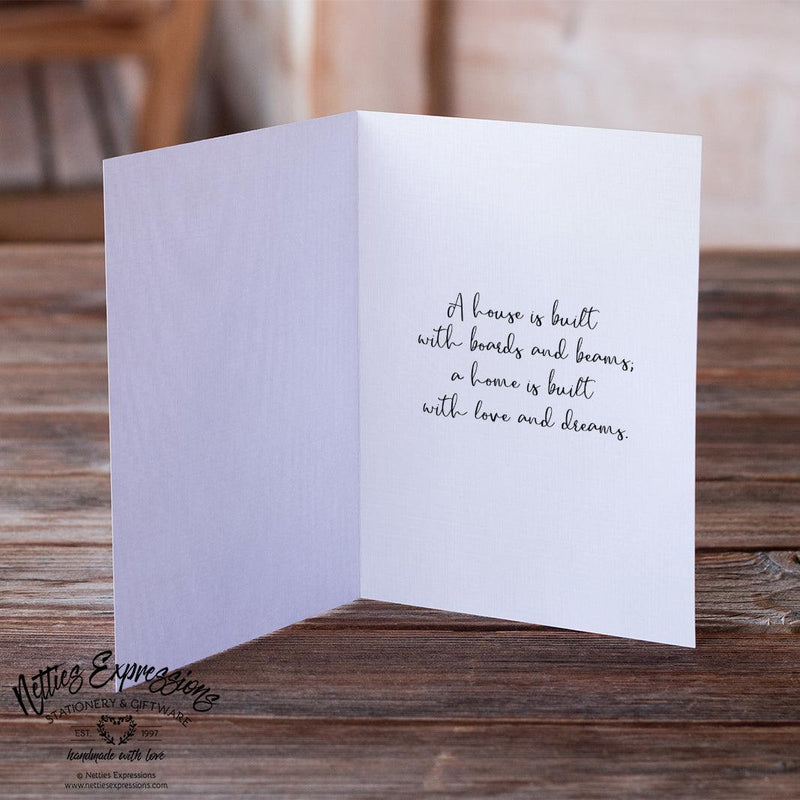 A house is built
with boards and beams;
a home is built
with love and dreams.
Netties Expressions
STATIONERY & GIFTWARE
EST. 1997
handmade with love
© Netties Expressions
www.nettiesexpressions.com